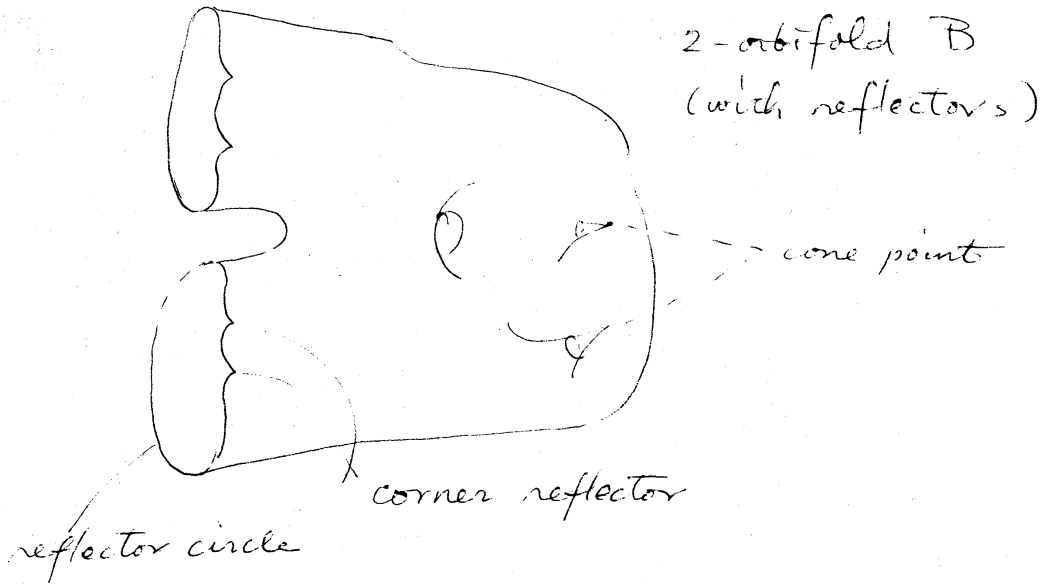 2-orbifold B
(with reflectors)
cone point
corner reflector
reflector circle